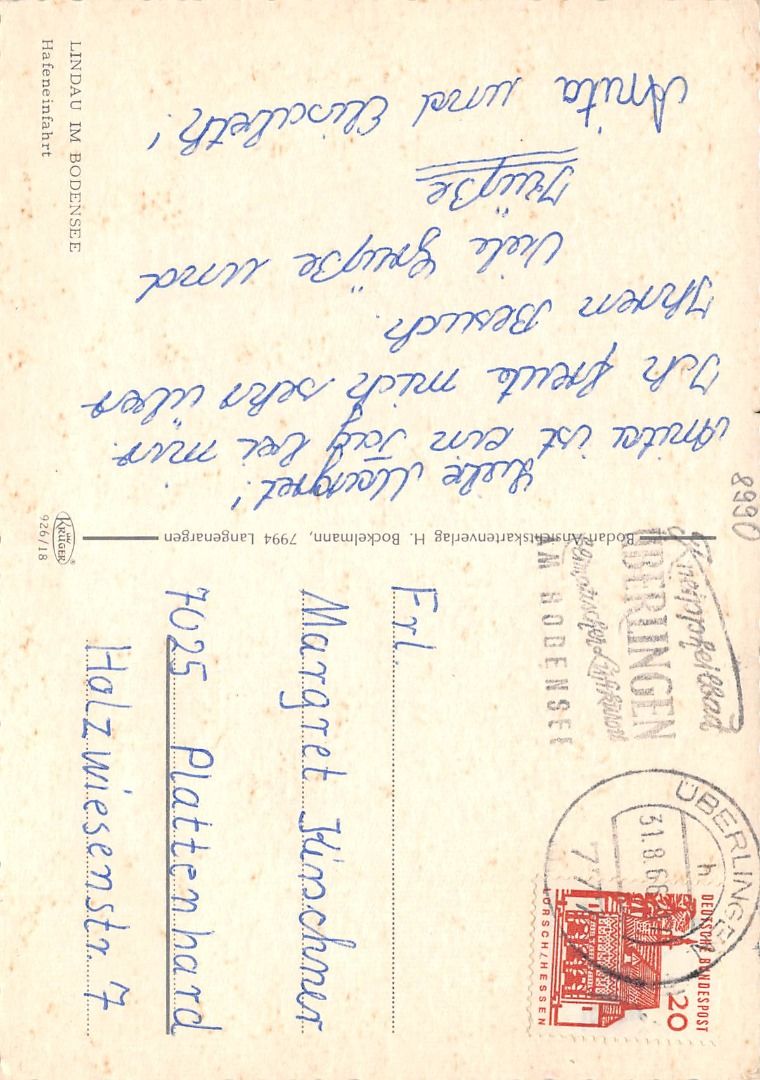 Liebe Margret!
Anita ist ein Tag bei mir.
Ich freute mich sehr über
Ihren Besuch.
Viele Grüße und
Grüße
Anita und Elisabeth!
LINDAU IM BODENSEE
Hafeneinfahrt
Bodan-Ansichtskartenverlag H. Bockelmann, 7994 Langenargen
KRÜGER
926/18
8990
Kneippheilbad
ÜBERLINGEN
AM BODENSEE
ÜBERLINGEN
31.8.68
h
777
DEUTSCHE BUNDESPOST
20
LORSCH/HESSEN
Frl.
Margret Kirschner
7025 Plattenhard
Holzwiesenstr. 7